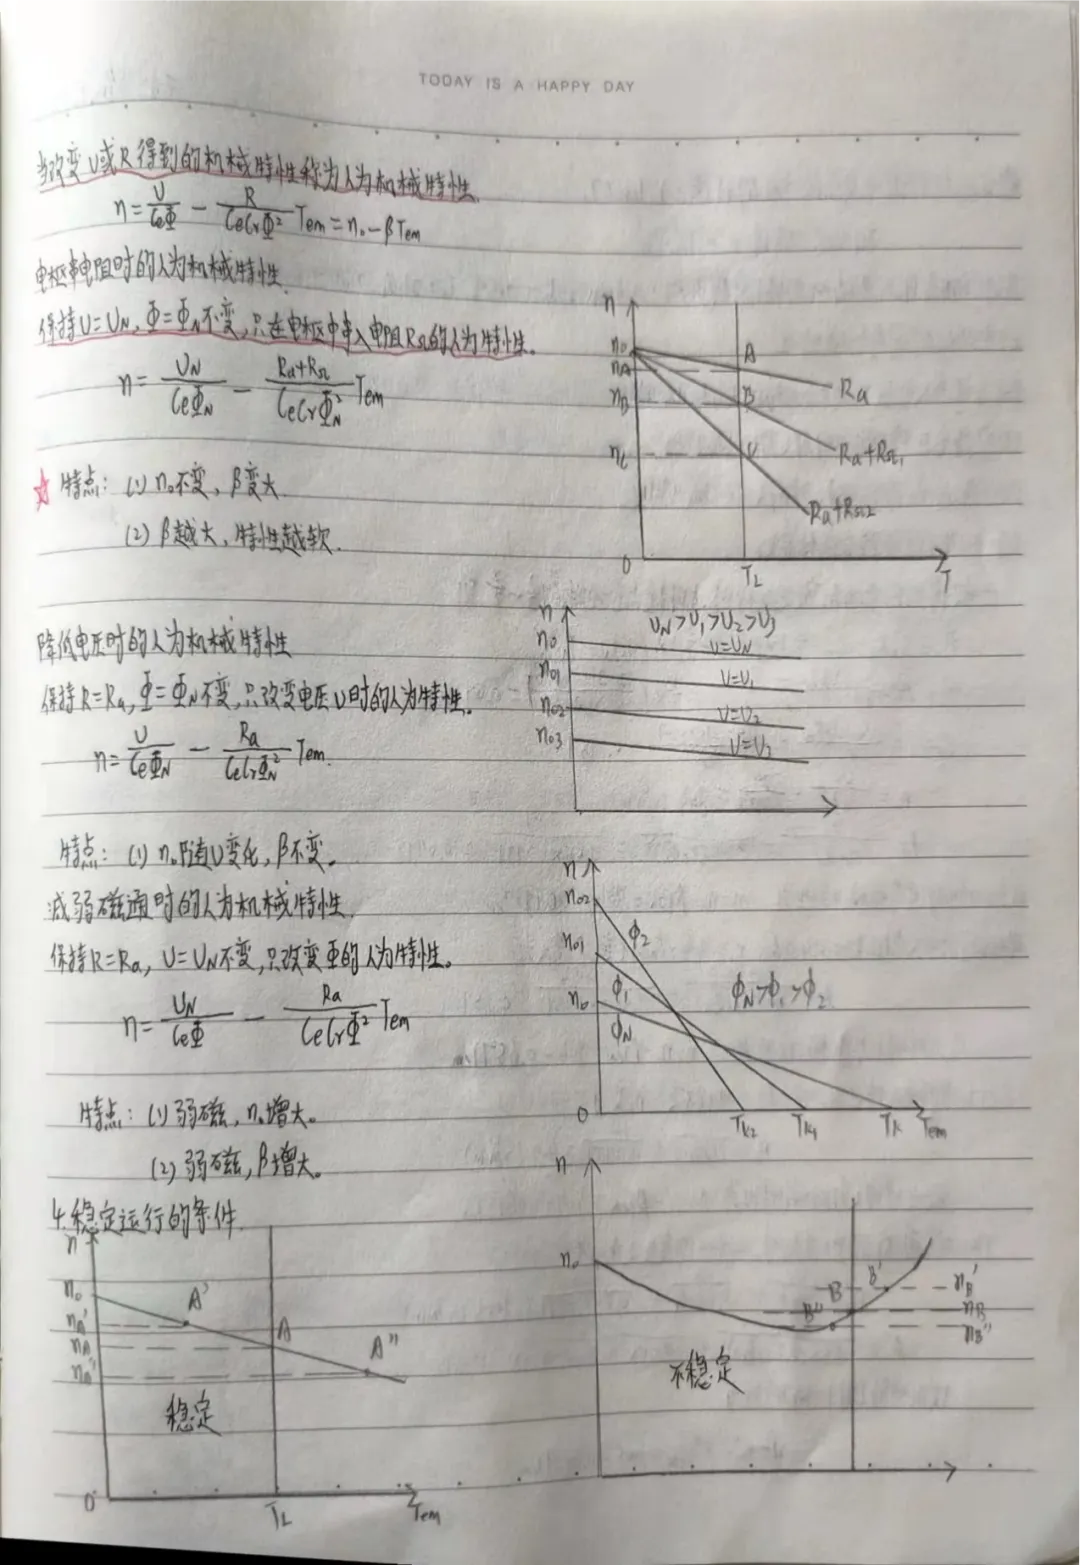 TODAY IS A HAPPY DAY
当改变U或R得到的机械特性称为人为机械特性.
n=U/CeΦ - R/CeCrΦ² Tem=n₀-βTem
电枢串电阻时的人为机械特性.
保持U=UN,Φ=ΦN不变,只在电枢中串入电阻RΩ的人为特性。
n=UN/CeΦN - Ra+RΩ/CeCrΦN² Tem
n
n₀
nA
nB
nc
A
B
Ra
Ra+RΩ1
Ra+RΩ2
0
TL
T
特点: (1) n₀不变, β变大.
(2) β越大, 特性越软.
降低电压时的人为机械特性
保持R=Ra,Φ=ΦN不变,只改变电压U时的人为特性。
n=U/CeΦN - Ra/CeCrΦN² Tem.
n
UN>U1>U2>U3
n₀
U=UN
n01
U=U1
n02
U=U2
n03
U=U3
特点: (1) n₀随U变化, β不变。
减弱磁通时的人为机械特性.
保持R=Ra, U=UN不变,只改变Φ的人为特性。
n=UN/CeΦ - Ra/CeCrΦ² Tem
n
n02
n01
n₀
ϕ2
ϕ1
ϕN
ϕN>ϕ1>ϕ2
0
Tk2
Tk1
Tk
Tem
特点: (1) 弱磁, n₀增大。
(2) 弱磁, β增大。
4.稳定运行的条件.
n
n₀
nA'
nA
nA''
A'
A
A''
稳定
0
TL
Tem
n
n₀
B
B'
B''
nB'
nB
nB''
不稳定